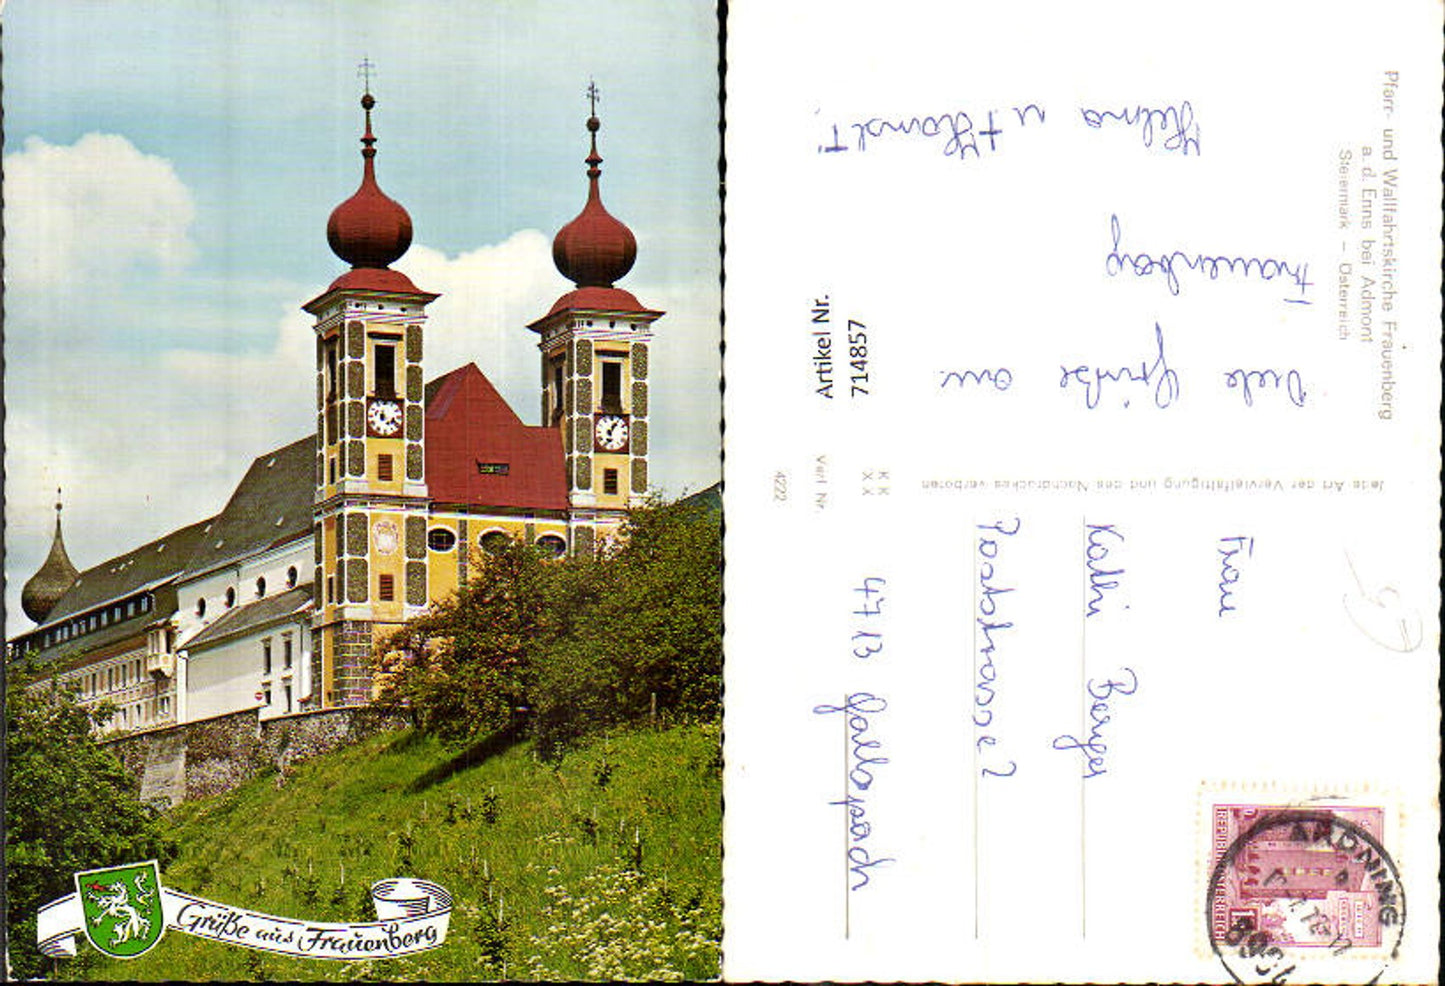 Grüße aus Frauenberg
Pfarr- und Wallfahrtskirche Frauenberg
a. d. Enns bei Admont
Steiermark – Österreich
Viele Grüße aus
Frauenberg
Helma u
Artikel Nr.
714857
Jede Art der Vervielfältigung und des Nachdruckes verboten
K K
X X
Verl. Nr.
4222
Frau
Kathi Berger
Poststrasse 2
4713 Gallspach
REPUBLIK ÖSTERREICH
ARDNING